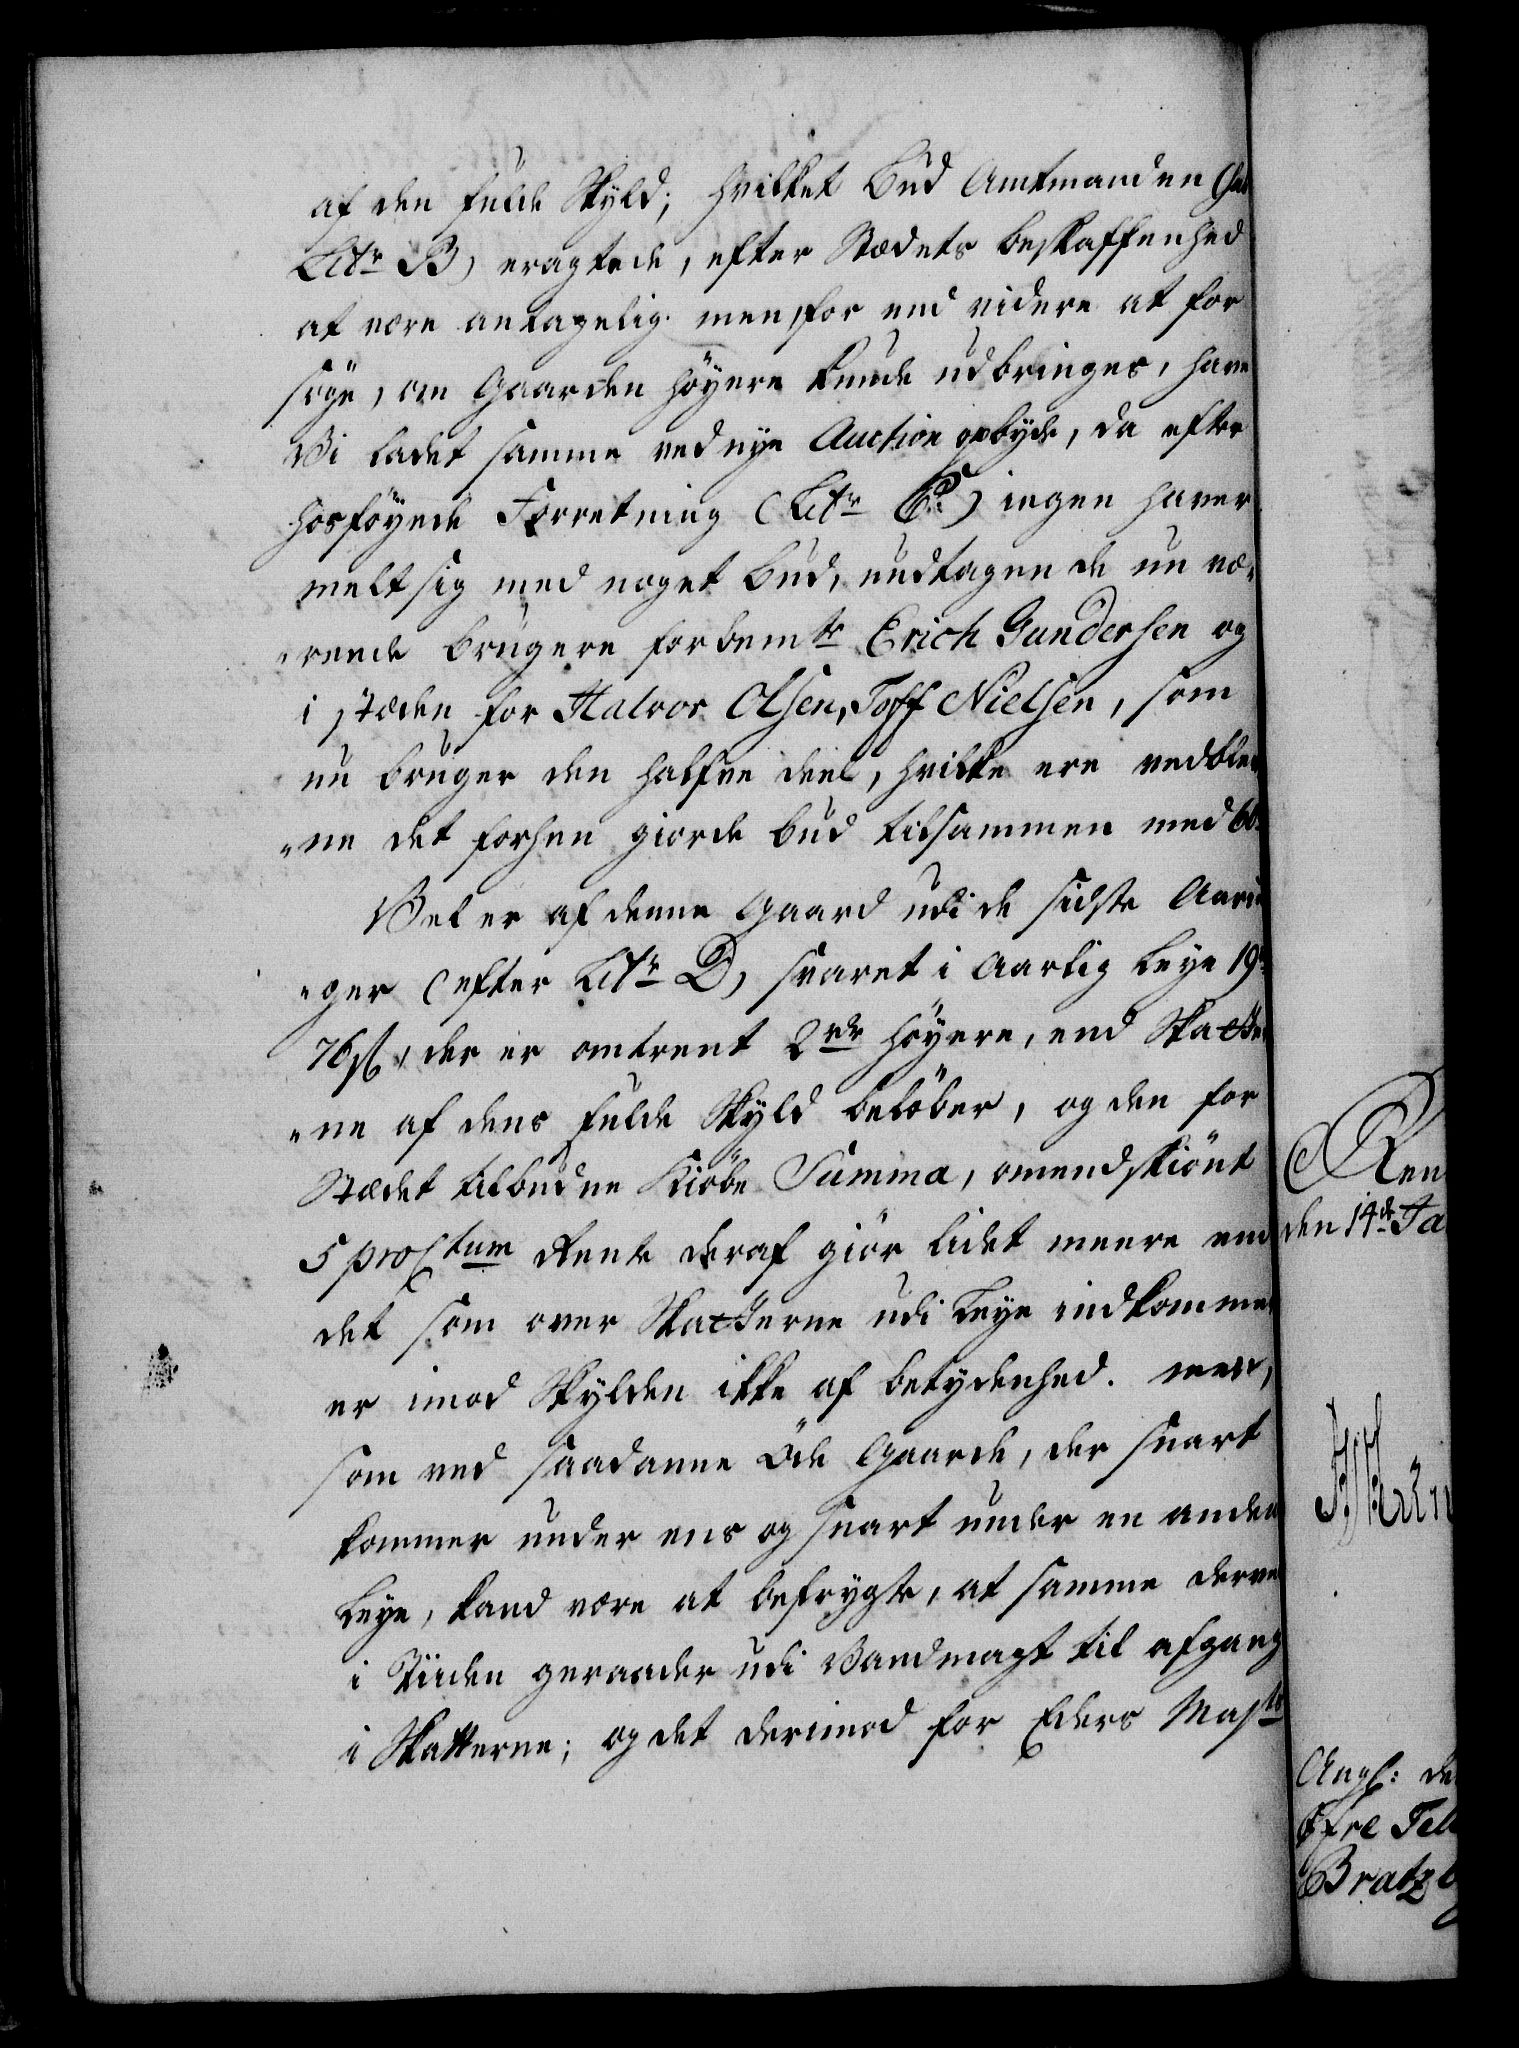 af den fulde Skyld; hvilket Bud Amtmanden
Litr B) eragtede, efter Stedets beskaffenhed
at være antagelig. men for end videre at for
söge, om Gaarden höyere kunde udbringes, have
Vi ladet samme ved nye Auction opbyde, da efter
hosföyede Forretning (Litr C.) ingen haver
melt sig med noget Bud, undtagen de nu væ„
„rende Brugere forbemte Erich Gundersen og
i stæden for Halvor Olsen, Toff Nielsen, som
nu bruger den halfve deel, hvilke ere vedble
„ne det forhen giorde bud tilsammen med
Vel er af denne Gaard udi de sidste Aarin
„ger (efter Litr D) svaret i Aarlig Leye 19
76 s, der er omtrent 2 rdr höyere, end Skatter
„ne af dens fulde Skyld belöber, og den for
Stædet tilbudne Kiöbe Summa, omendskiönt
5 pro Ctum Rente deraf giör lidet meere end
det som over Skatterne udi Leye indkommer
er imod Skylden ikke af betydenhed. men,
som ved saadanne Öde Gaarde, der snart
kommer under ens og snart under en anden
Leye, kand være at befrygte, at samme derved
i Tiiden geraader udi Vandmagt til afgang
i Skatterne; og det derimod for Eders Majts
Ren
den 14de Ja
Angl: de
Öfre Tell
Bratzb